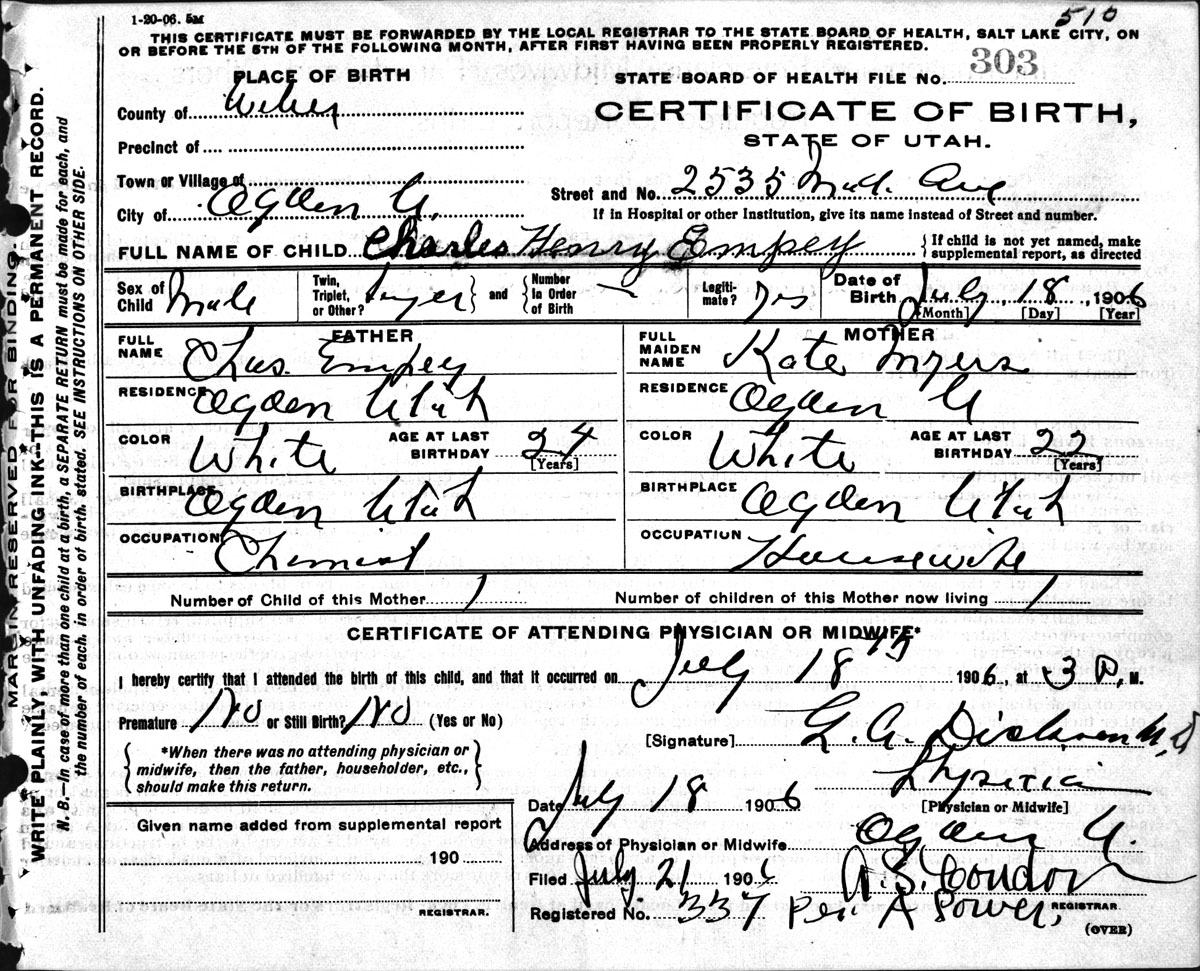 1-20-06. 5M
510
THIS CERTIFICATE MUST BE FORWARDED BY THE LOCAL REGISTRAR TO THE STATE BOARD OF HEALTH, SALT LAKE CITY, ON
OR BEFORE THE 5TH OF THE FOLLOWING MONTH, AFTER FIRST HAVING BEEN PROPERLY REGISTERED.
MARGIN RESERVED FOR BINDING.
WRITE PLAINLY, WITH UNFADING INK--THIS IS A PERMANENT RECORD.
N. B.—In case of more than one child at a birth, a SEPARATE RETURN must be made for each, and
the number of each, in order of birth, stated. SEE INSTRUCTIONS ON OTHER SIDE.
PLACE OF BIRTH
STATE BOARD OF HEALTH FILE No. 303
County of Weber
CERTIFICATE OF BIRTH,
STATE OF UTAH.
Precinct of
Town or Village of
Street and No. 2535 Ave
City of Ogden U.
If in Hospital or other Institution, give its name instead of Street and number.
FULL NAME OF CHILD Charles Henry Empey
{ If child is not yet named, make
supplemental report, as directed
Sex of Child Male
Twin, Triplet, or Other? } and { Number in Order of Birth —
Legiti- mate? Yes
Date of Birth July 18, 1906
[Month] [Day] [Year]
FATHER
MOTHER
FULL NAME Chas. Empey
FULL MAIDEN NAME Kate Myers
RESIDENCE Ogden Utah
RESIDENCE Ogden U
COLOR White AGE AT LAST BIRTHDAY 24 [Years]
COLOR White AGE AT LAST BIRTHDAY 22 [Years]
BIRTHPLACE Ogden Utah
BIRTHPLACE Ogden Utah
OCCUPATION Chemist
OCCUPATION Housewife
Number of Child of this Mother 1
Number of children of this Mother now living 1
CERTIFICATE OF ATTENDING PHYSICIAN OR MIDWIFE*
I hereby certify that I attended the birth of this child, and that it occurred on July 18th 1906, at 3 P. M.
Premature No or Still Birth? No (Yes or No)
[Signature] M.D
{ *When there was no attending physician or
midwife, then the father, householder, etc.,
should make this return. }
Physician
Date July 18 1906
[Physician or Midwife]
Given name added from supplemental report
Address of Physician or Midwife Ogden U.
190
Filed July 21 1906
R. S. Condon
REGISTRAR.
REGISTRAR.
Registered No. 337 Per. A Power,
(OVER)